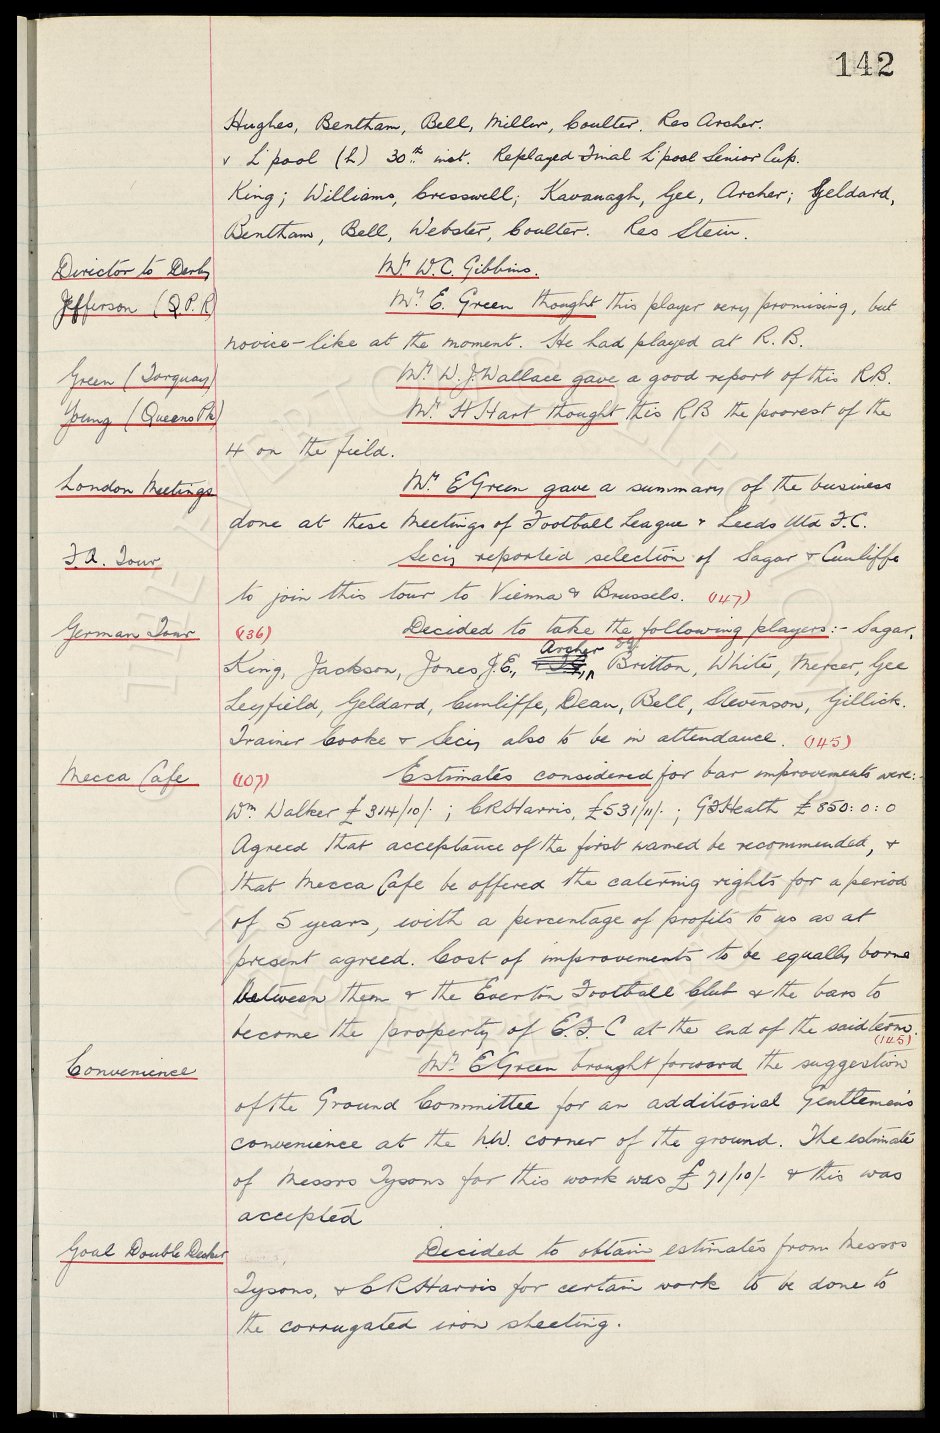 142
Hughes, Bentham, Bell, Miller, Coulter. Res Archer.
v L'pool (h) 30th inst. Replayed Final L'pool Senior Cup.
King; Williams, Cresswell; Kavanagh, Gee, Archer; Geldard,
Bentham, Bell, Webster, Coulter. Res Stein.
Director to Derby Mr. W.C. Gibbins.
Jefferson (Q.P.R) Mr. E. Green thought this player very promising, but
novice-like at the moment. He had played at R.B.
Green (Torquay) Mr. W.J. Wallace gave a good report of this R.B.
Young (Queens Pk) Mr. H Hart thought this R B the poorest of the
4 on the field.
London Meetings Mr. E Green gave a summary of the business
done at these Meetings of Football League & Leeds Utd F.C.
F.A. Tour Secy reported selection of Sagar & Cunliffe
to join this tour to Vienna & Brussels. (147)
German Tour (136) Decided to take the following players:- Sagar,
King, Jackson, Jones, J.E., Archer Britton, White, Mercer, Gee
Leyfield, Geldard, Cunliffe, Dean, Bell, Stevenson, Gillick.
Trainer Cooke & Secy also to be in attendance. (145)
Mecca Cafe (107) Estimates considered for bar improvements were:-
Wm Walker £314/10/-; C R Harris, £531/11/-; G J Heath £850:0:0
Agreed that acceptance of the first named be recommended, &
that Mecca Cafe be offered the catering rights for a period
of 5 years, with a percentage of profits to us as at
present agreed. Cost of improvements to be equally borne
between them & the Everton Football Club & the bars to
become the property of E.F.C at the end of the said term.
(145)
Convenience Mr. E Green brought forward the suggestion
of the Ground Committee for an additional Gentlemen's
convenience at the N.W. corner of the ground. The estimate
of Messrs Tysons for this work was £71/10/- & this was
accepted
Goal Double Decker Decided to obtain estimates from Messrs
Tysons, & C R Harris for certain work to be done to
the corrugated iron sheeting.